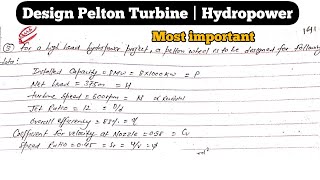 Design Pelton Turbine | Hydropower
Most important
for a high head hydropower project, a pelton wheel is to be designed for following
data:
Installed Capacity = 8MW = 8X1000KW = P
Net Head = 375m = H
Turbine Speed = 500rpm = N
Jet Ratio = 12 = D/d
Overall efficiency = 88% = η
Coefficient for velocity at Nozzle = 0.98 = Cv
Speed Ratio = 0.45 =